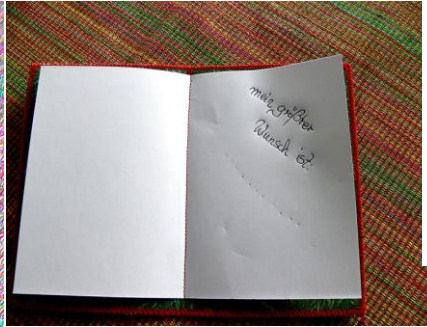 mein größter
Wunsch ist:
..........